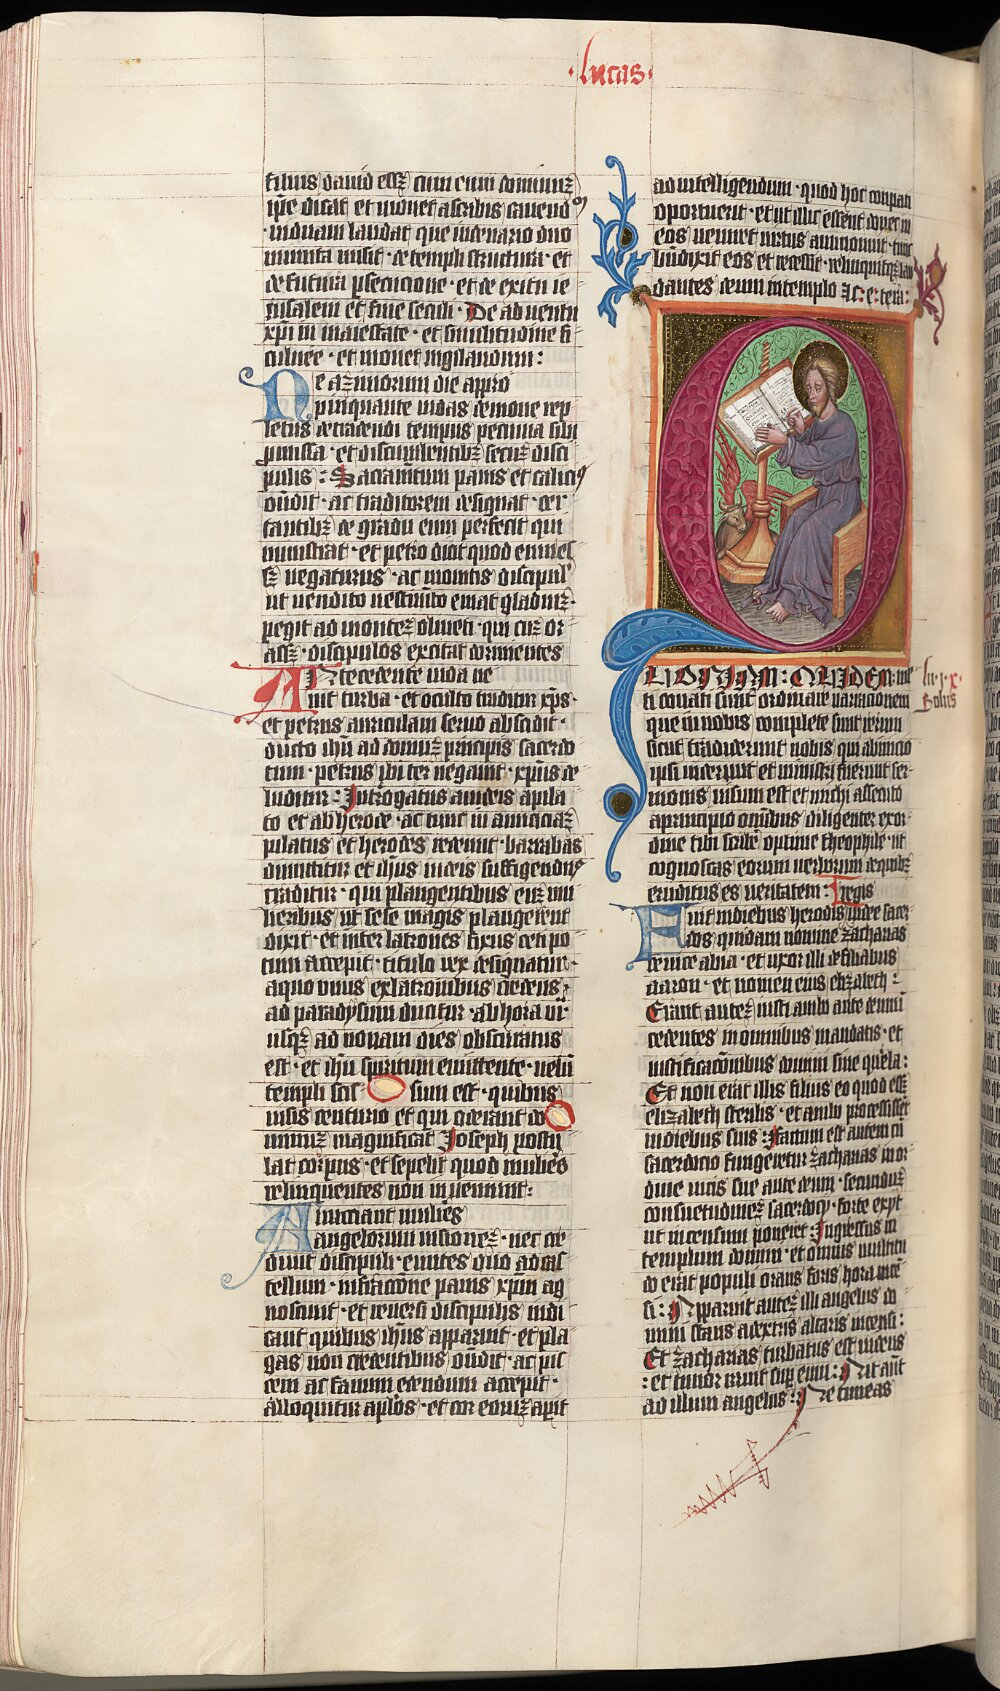 lucas
filius dauid essʒ cum eum dominuʒ
ipse dicat et monet a scribis cauendꝰ
viduam laudat que in cenario duo
minuta misit · de templi structura · et
de futura psecucione · et de exitu ie
rusalem et fine seculi · De aduentu
xp̄i in maiestate · et similitudine fi
culnee · et monet uigilandum :
De azimorum die appro
pinquante iudas demone rep
letus de tradendi tempus pecunia sibi
pmissa · et discumbentibʒ secuʒ disci
pulis : Sacram̄tum panis et caliciꝰ
on̄dit · ac traditorem designat · cer
tantibʒ de gradu eum perfecit qui
ministrat · et petro dicit quod eum
negaturus · ac monitis discipul'
ut uendito uestim̄to emat gladiuʒ ·
pegit ad monteʒ oliueti · qui cuʒ or
assʒ · discipulos excitat dormientes
Antecedente iuda ue
nit turba · et osculo traditur xp̄s ·
et petrus auriculam seruo abscidit ·
ducto ihū ad domuʒ principis sacerdo
tum · petrus ibi ter negauit · xp̄us de
luditur : Introgatus a iudeis a pila
to et ab herode · ac tunc in amiciciaʒ
pilatus et herodes redeunt · barrabas
dimittitur et ihūs iudeis suffigendꝰ
traditur · qui plangentibus euʒ mu
lieribus ut sese magis plangerent
dixit · et inter latrones fixus cen po
tum accepit · titulo rex designatur ·
a quo unus ex latronibus credens
ad paradysum ducitur · ab hora vi
usqʒ ad nonam dies obscuratus
est · et ihū spiritum emittente · uelū
templi scis sum est · quibus
uisis centurio et qui aderant do
minuʒ magnificat̄ Joseph postu
lat corpus · et sepelit quod mulieres
relinquentes non inueniunt :
Anunciant mulieres
angelorum uisioneʒ · nec cre
dunt discipuli · euntes duo ad cas
tellum · in fractione panis xp̄m ag
noscunt · et reuersi discipulis indi
cant quibus ihūs apparuit · et pla
gas non credentibus on̄dit · ac pis
cem ac fauum edendum accepit ·
alloquitur ap̄los · et cor eoruʒ apit
ad intelligendum · quod hoc eum pati
oportuerit · et ut illic essent donec in
eos ueniret uirtus ammonuit · tunc
bn̄dixit eos et recessit · relinquitqʒ lau
dantes deum in templo ⁊c : e : tera :
QUONIAM : QUIDEM : mul
ti conati sunt ordinare narrationem
que in nobis complete sunt rerum
sicut tradiderunt nobis qui ab inicio
ipsi uiderunt et ministri fuerunt ser
monis uisum est et michi assecuto
a principio omībus diligenter ex or
dine tibi scribe optime theophile · ut
cognoscas eorum uerborum de quibʒ
eruditus es ueritatem : Regis
Fuit in diebus herodis iudee sacer
dos quidam nomine zacharias
de uice abia · et uxor illi de filiabus
aaron · et nomen eius elyzabeth :
Erant auteʒ iusti ambo ante deum in
cedentes in omnibus mandatis · et
iustificacōnibus domini sine querela :
Et non erat illis filius eo quod essʒ
elizabeth sterilis · et ambo processisset
in diebus suis : Factum est autem cū
sacerdocio fungeretur zacharias in or
dine uicis sue ante deum · secunduʒ
consuetudineʒ sacerdocij · sorte exijt
ut incensum poneret : Ingressus in
templum domini · et omnis multitu
do erat populi orans foris · hora incē
si : Apparuit auteʒ illi angelus do
mini stans a dextris altaris incensi :
Et zacharias turbatus est uidens
· et timor irruit sup eum : Ait aūt
ad illum angelus : Ne timeas